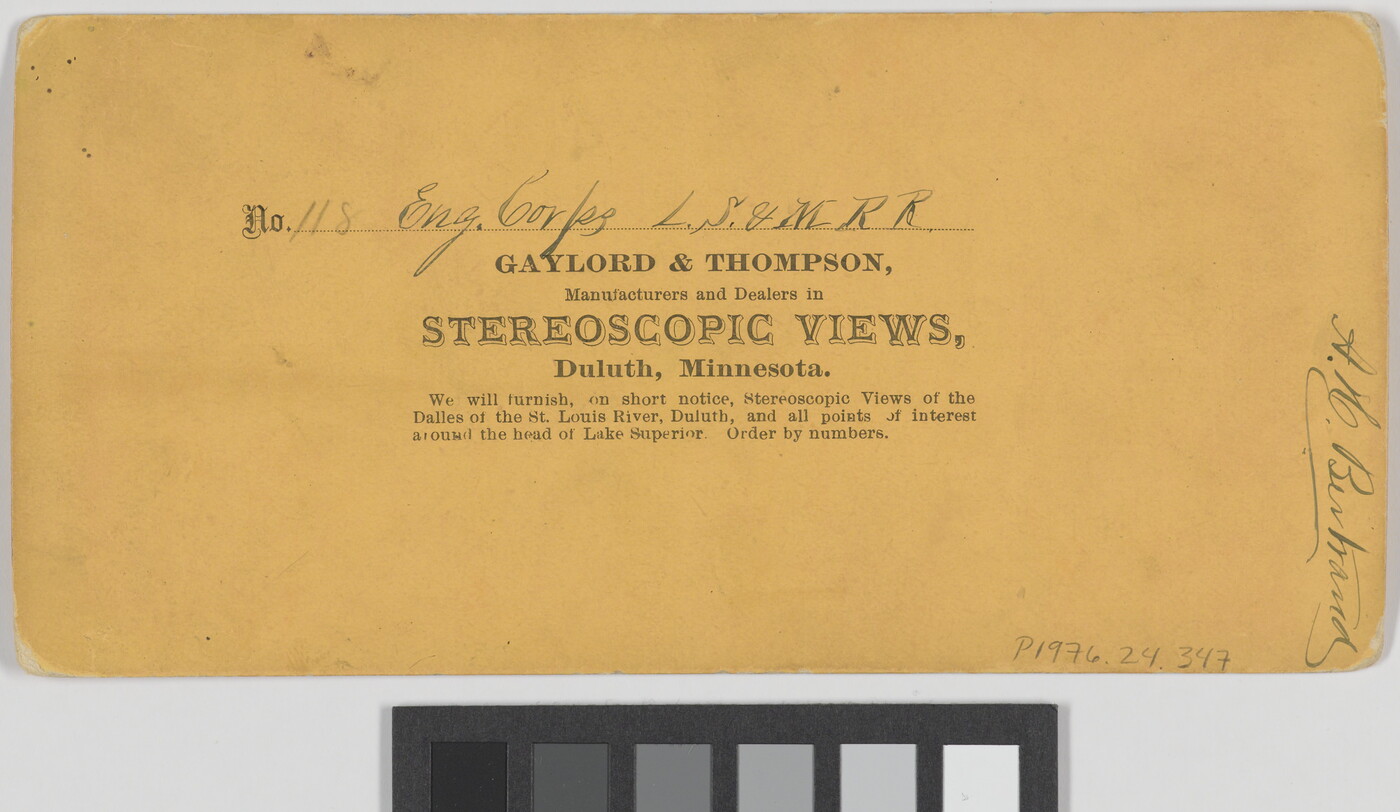 No. 118 Eng. Corps L. S. & M R R.
GAYLORD & THOMPSON,
Manufacturers and Dealers in
STEREOSCOPIC VIEWS,
Duluth, Minnesota.
We will furnish, on short notice, Stereoscopic Views of the
Dalles of the St. Louis River, Duluth, and all points of interest
around the head of Lake Superior. Order by numbers.
A. H. Bertrand
P1976.24.347